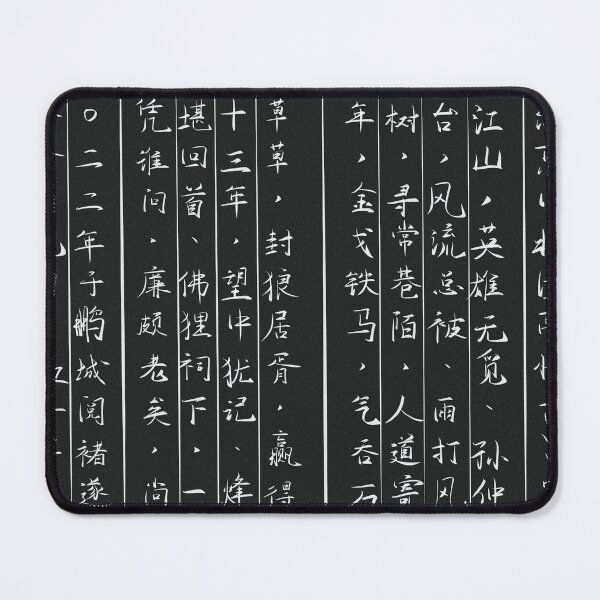 江山，英雄无觅、孙仲
台，风流总被、雨打风
树，寻常巷陌，人道寄
年，金戈铁马，气吞万
草草，封狼居胥，赢得
十三年，望中犹记、烽
堪回首、佛狸祠下，一
凭谁问，廉颇老矣，尚
〇二二年子鹏城阅褚遂